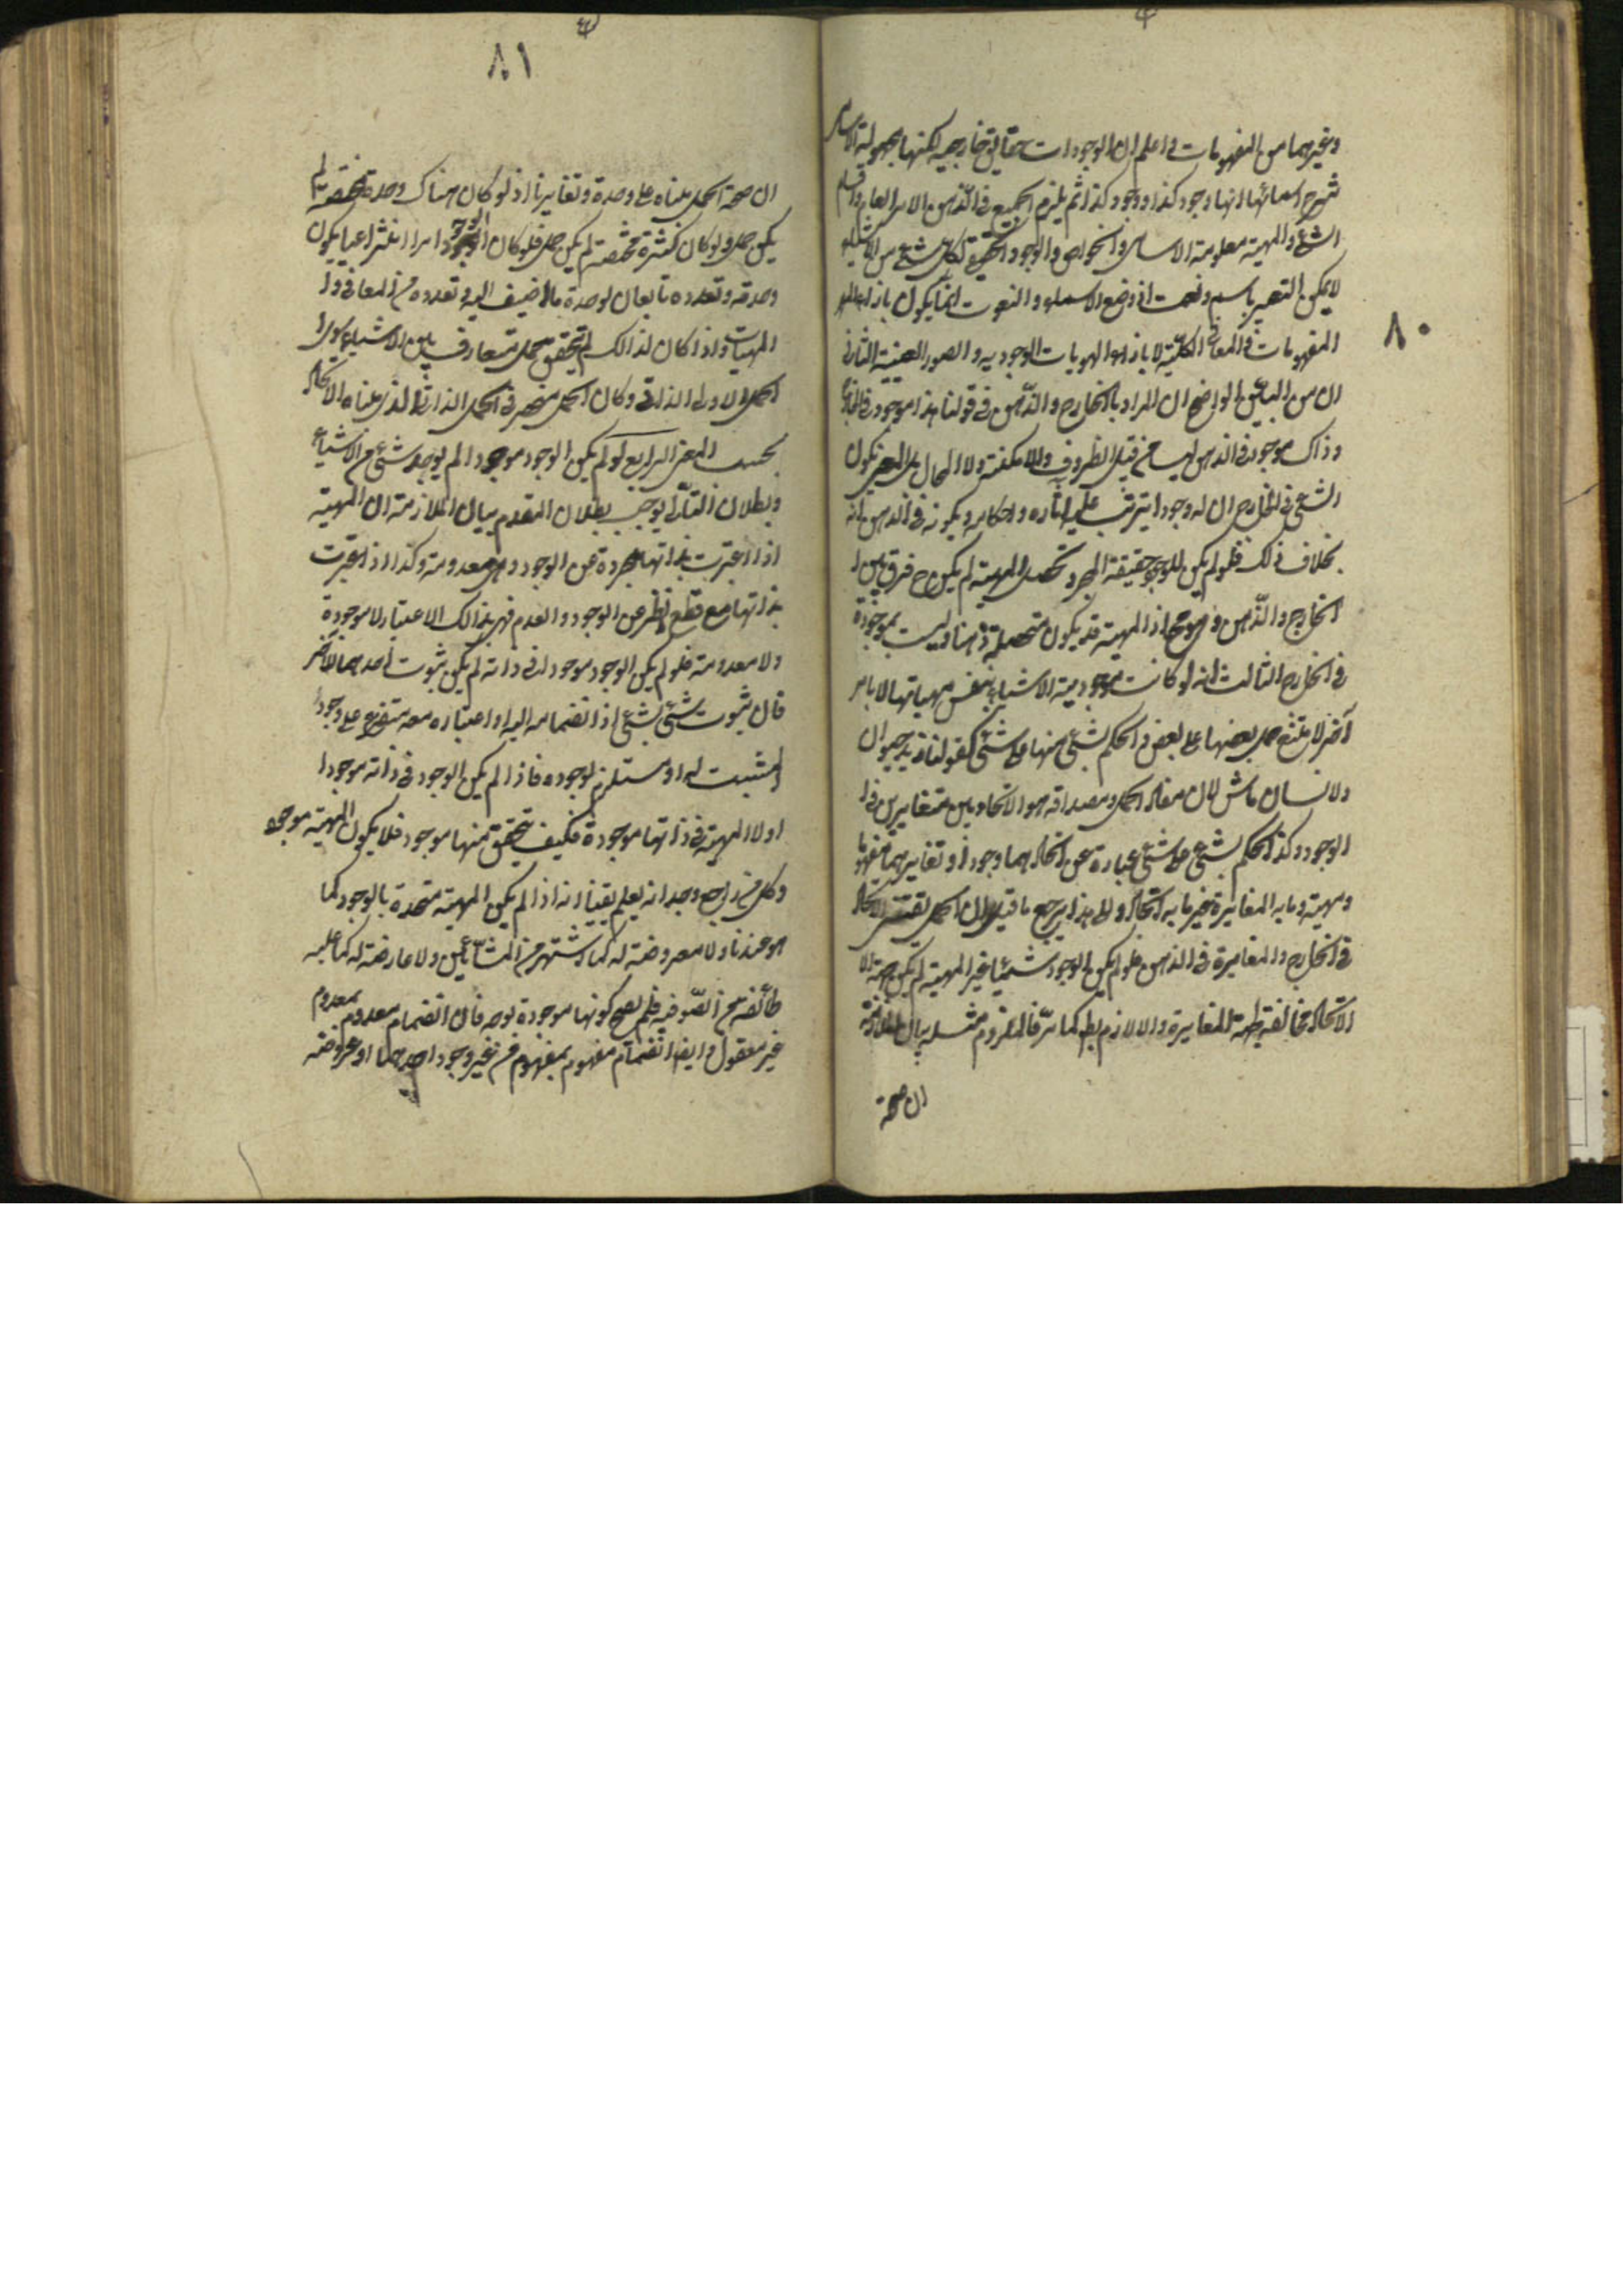 ٨٠
وغيرهما من المفهومات واعلم ان الوجودات حقايق خارجية لكنها مجهولة الاسامى
شرح اسمائها انها وجود كذا ووجود كذا ثم يلزم الجميع فى الذهن الامر العام واقسام
الشئ والمهية معلومة الاسامى والخواص والوجود الحقيقى لكل شئ من الاشياء
لا يمكن التعبير باسم ونعت اذ وضع الاسماء والنعوت انما يكون بازاء
المفهومات والمعانى الكلية لا بازاء الهويات الوجودية والصور العينية الثانى
ان من البين الواضح ان المراد بالخارج والذهن فى قولنا هذا موجود فى الخارج
وذاك موجود فى الذهن ليسا من قبيل الظروف والامكنة ولا المحال بل المعنى بكون
الشئ فى الخارج ان له وجودا يترتب عليه آثاره واحكامه وبكونه فى الذهن انه
بخلاف ذلك فلو لم يكن للوجود حقيقة الا مجرد تحصل المهية لم يكن ح فرق بين
الخارج والذهن وهو مح اذ المهية قد يكون متحصلة ذهنا وليست بموجودة
فى الخارج الثالث انه لو كانت موجودية الاشياء بنفس مهياتها لا بامر
آخر لامتنع حمل بعضها على بعض والحكم بشئ منها على شئ كقولنا زيد حيوان
والانسان ماش لان مفاد الحمل ومصداقه هو الاتحاد بين متغايرين فى
الوجود وكذا الحكم بشئ على شئ عبارة عن اتحادهما وجودا وتغايرهما مفهوما
ومهية وما به المغايرة غير ما به الاتحاد والى هذا يرجع ما قيل ان الحمل يقتضى الاتحاد
فى الخارج والمغايرة فى الذهن فلو لم يكن الوجود شيئا غير المهية لم يكن جهة
الاتحاد مخالفة لجهة المغايرة واللازم بط كما مر فالملزوم مثله بيان الملازمة
ان صحة
٨١
ان صحة الحمل مبناه على وحدة وتغاير ما اذ لو كان هناك وحدة محضة لم
يكن حمل ولو كان كثرة محضة لم يكن حمل فلو كان الوجود امرا انتزاعيا يكون
وحدته وتعدده تابعان لوحدة ما اضيف اليه وتعدده من المعانى و
المهيات واذا كان كذالك لم يتحقق حمل متعارف بين الاشياء سوى
الحمل الاولى الذاتى وكان الحمل منحصر فى الحمل الذاتى الذى مبناه الاتحاد
بحسب المعنى الرابع لو لم يكن الوجود موجودا لم يوجد شئ من الاشياء
وبطلان التالى يوجب بطلان المقدم بيان الملازمة ان المهية
اذا اعتبرت بذاتها مجردة عن الوجود فهى معدومة وكذا اذا اعتبرت
بذاتها مع قطع النظر عن الوجود والعدم فهى بذالك الاعتبار لا موجودة
ولا معدومة فلو لم يكن الوجود موجودا فى ذاته لم يكن ثبوت احدهما للآخر
فان ثبوت شئ لشئ اذا انضمامه اليه او اعتباره معه متفرع على وجود
المثبت له او مستلزم لوجوده فاذا لم يكن الوجود فى ذاته موجودا
ولا المهية فى ذاتها موجودة فكيف يتحقق منها موجود فلا يكون المهية موجوده
وكل من راجع وجدانه يعلم يقينا انه اذا لم يكن المهية متحدة بالوجود كما
هو عندنا ولا معروضة له كما اشتهر من المشائين ولا عارضة له كما عليه
طائفة من الصوفية فلم يصح كونها موجودة بوجه فان انضمام معدوم بمعدوم
غير معقول وايضا انضمام مفهوم بمفهوم من غير وجود احدهما او عروضه